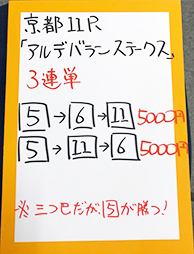 京都11R
「アルデバランステークス」
3連単
5→6→11 5000円
5→11→6 5000円
※三つ巴だが、5が勝つ!